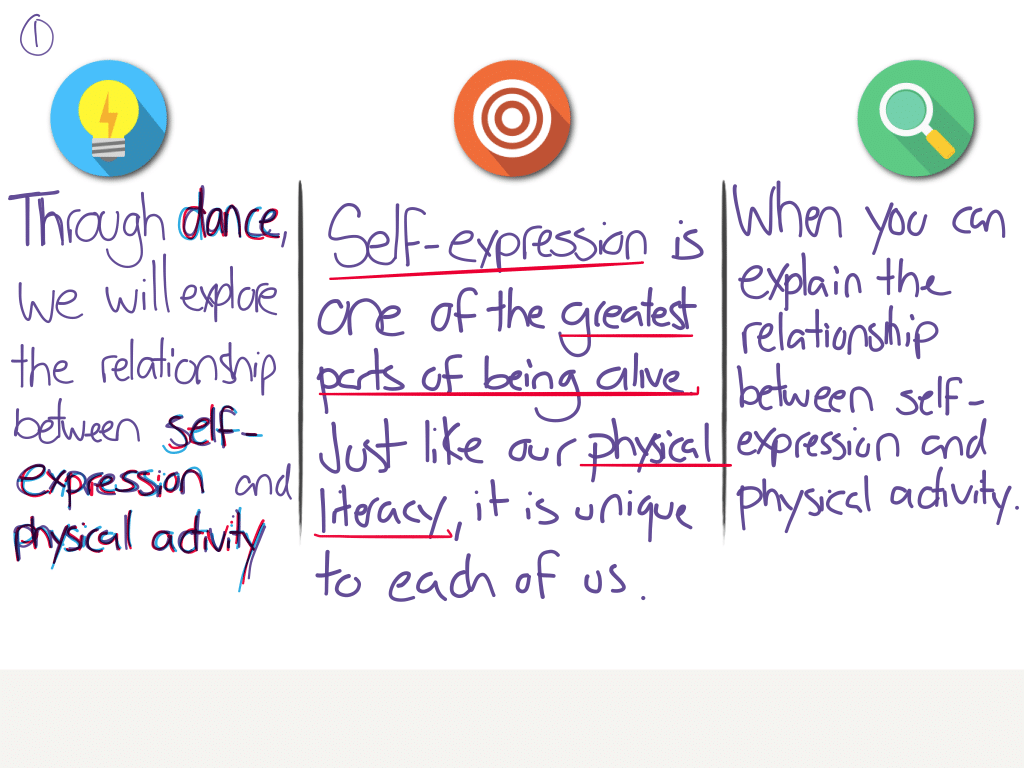 1
Through dance,
we will explore
the relationship
between self-
expression and
physical activity
Self-expression is
one of the greatest
parts of being alive.
Just like our physical
literacy, it is unique
to each of us.
When you can
explain the
relationship
between self-
expression and
physical activity.